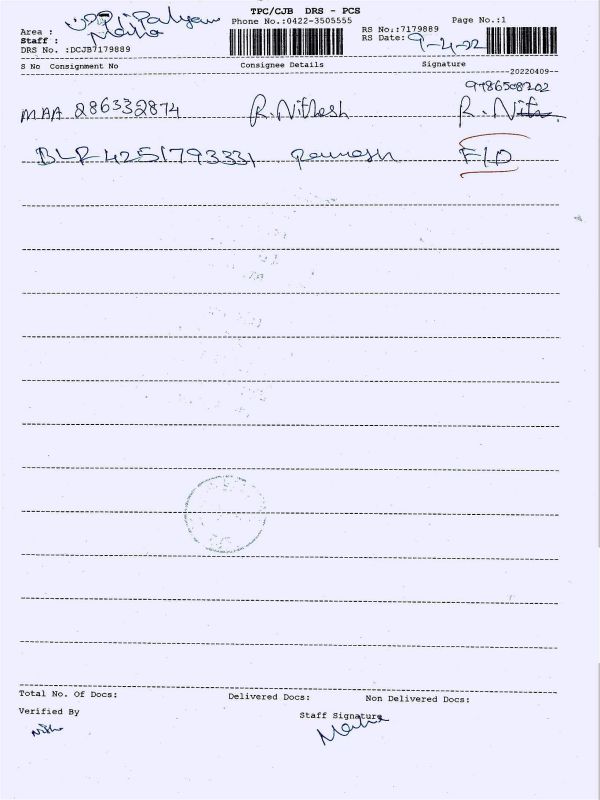 TPC/CJB DRS - PCS
Area :
Phone No.:0422-3505555
Page No.:1
Staff :
RS No.:7179889
DRS No. :DCJB7179889
RS Date: 9-4-22
S No Consignment No Consignee Details Signature
--20220409--
MAA 286332874 R.Nithesh R.
BLR 4251793331 F/D
Total No. Of Docs: Delivered Docs: Non Delivered Docs:
Verified By
Staff Signature